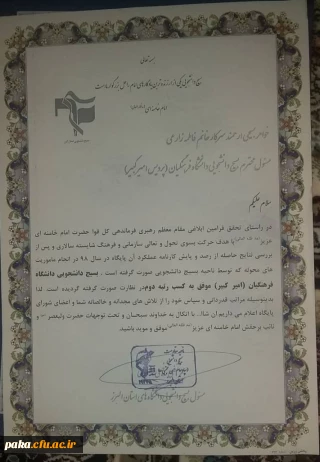 بسمه تعالی
بسیج دانشجویی یکی از
امام خامنه ای
خواهر بسیجی ارجمند سرکار خانم فاطمه زارعی
مسئول محترم بسیج دانشجویی دانشگاه فرهنگیان (پردیس امیرکبیر)
سلام علیکم
در راستای تحقق فرامین ابلاغی مقام معظم رهبری فرماندهی کل قوا حضرت امام خامنه ای
عزیز با هدف حرکت بسوی تحول و تعالی سازمانی و فرهنگ شایسته سالاری و پس از
بررسی نتایج حاصله از رصد و پایش کارنامه عملکرد آن پایگاه در سال ۹۸ در انجام ماموریت
های محوله که توسط ناحیه بسیج دانشجویی صورت گرفته است . بسیج دانشجویی دانشگاه
فرهنگیان (امیر کبیر) موفق به کسب رتبه دوم در نظارت صورت گرفته گردیده است لذا
بدینوسیله مراتب قدردانی و سپاس خود را از تلاش های مجدانه و خالصانه شما و اعضای شورای
پایگاه اعلام می داریم ان شاا... با اتکال به خداوند سبحان و تحت توجهات حضرت ولیعصر و
نائب برحقش امام خامنه ای عزیز موفق و موید باشید.
مسئول بسیج دانشجویی دانشگاه های استان البرز
paka.cfu.ac.ir